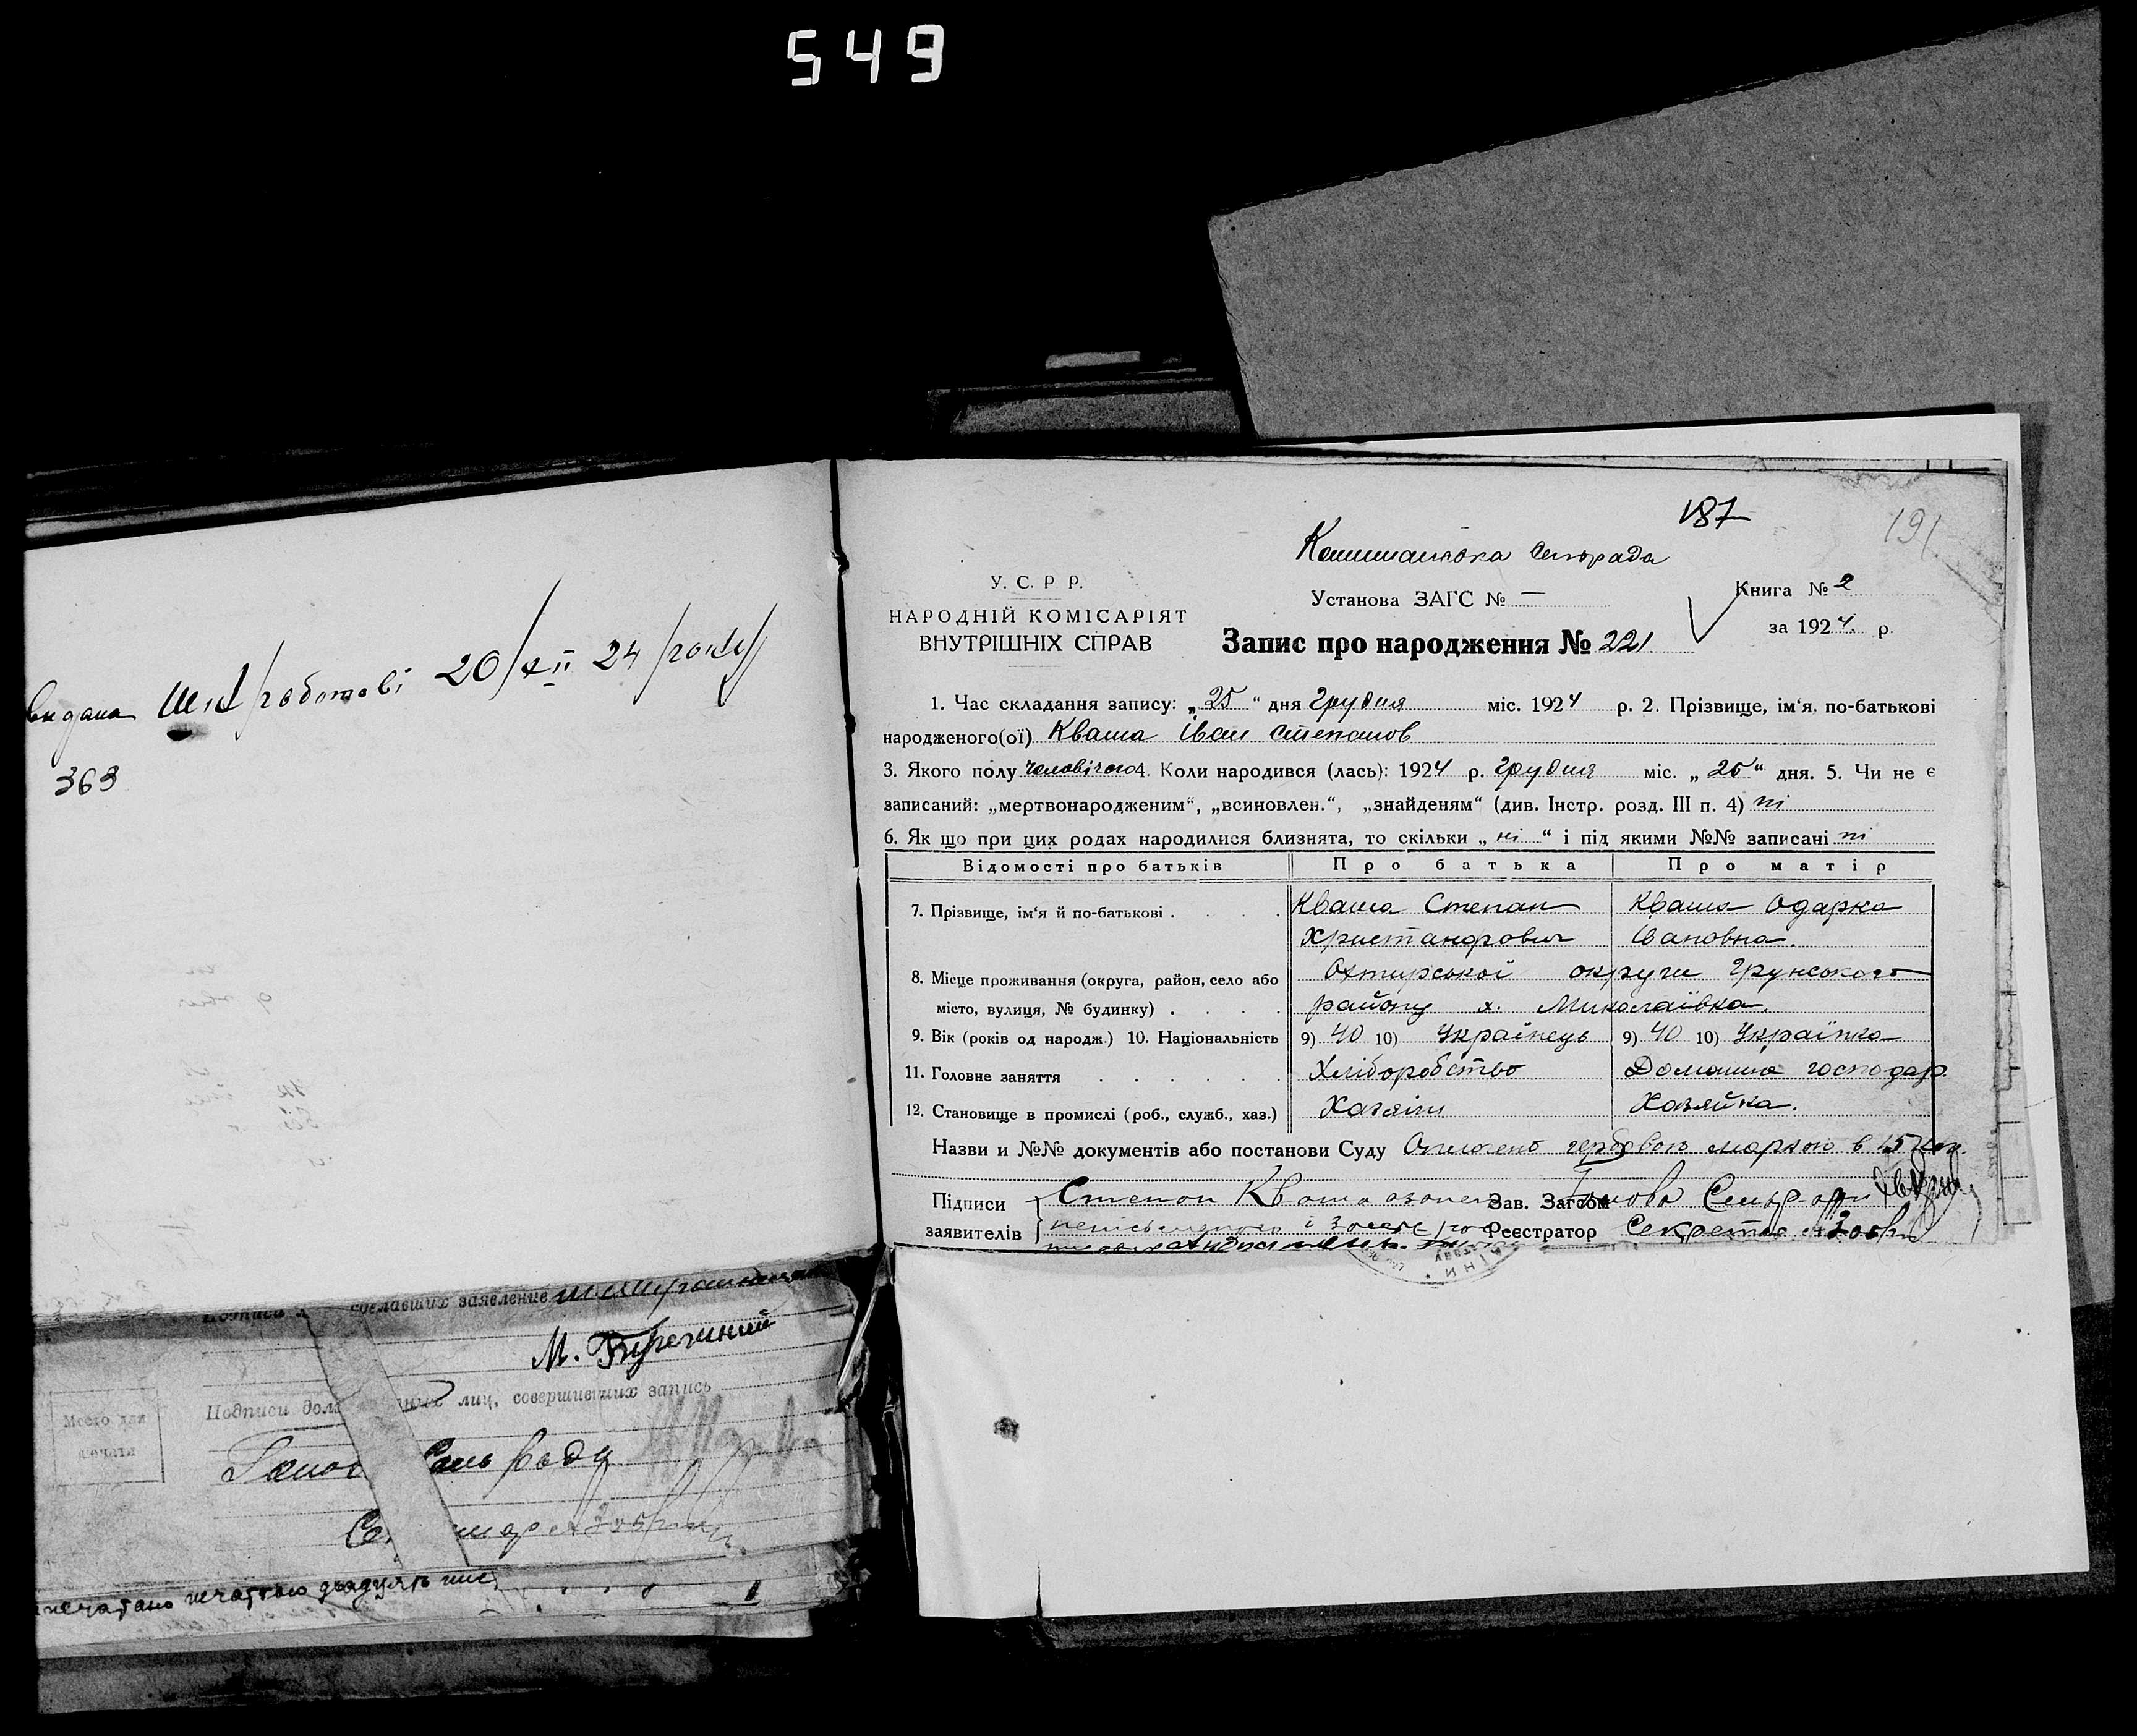 549
видана 20/XII 24 /року/
363
сделавших заявление
М.
Подписи лиц, совершивших запись
Место для
печати
Сель Рады
печатано печаттаю двадцять
187
191
Сельрада
У. С. Р Р.
НАРОДНІЙ КОМІСАРІЯТ
ВНУТРІШНІХ СПРАВ
Установа ЗАГС № —
Книга № 2
за 1924 р.
Запис про народження № 221
1. Час складання запису: „25“ дня Грудня міс. 1924 р. 2. Прізвище, ім‘я, по-батькові
народженого(ої) Кваша Іван Степанов
3. Якого полу чоловічого 4. Коли народився (лась): 1924 р. Грудня міс. „20“ дня. 5. Чи не є
записаний: „мертвонародженим“, „всиновлен.“, „знайденям“ (див. Інстр. розд. III п. 4) ні
6. Як що при цих родах народилися близнята, то скільки „ні“ і під якими №№ записані ні
Відомості про батьків Про батька Про матір
7. Прізвище, ім‘я й по-батькові . . . . Кваша Степан Кваша Одарка
Христандрович Івановна.
8. Місце проживання (округа, район, село або Охтирської округи Грунського
місто, вулиця, № будинку) . . . . району х. Миколаївка.
9. Вік (років од народж.) 10. Національність 9) 40 10) Українець 9) 40 10) Українка
11. Головне заняття . . . . . . Хліборобство Домашнє господар.
12. Становище в промислі (роб., служб., хаз.) Хазяін Хазяйка.
Назви и №№ документів або постанови Суду Оплачено гербовою маркою в 15 коп.
Підписи Степан Кваша Зав. Загсом Голова Сельради
заявителів Реєстратор Секретар